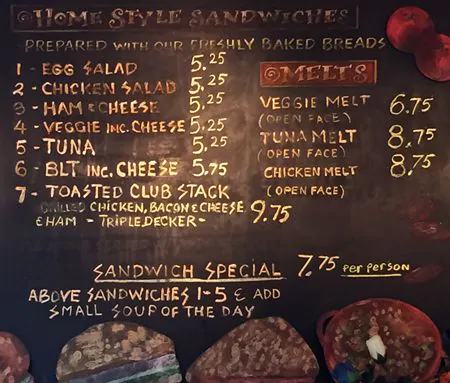 HOME STYLE SANDWICHES
PREPARED WITH OUR FRESHLY BAKED BREADS
1 - EGG SALAD 5.25
2 - CHICKEN SALAD 5.25
3 - HAM & CHEESE 5.25
4 - VEGGIE INC. CHEESE 5.25
5 - TUNA 5.25
6 - BLT INC. CHEESE 5.75
7 - TOASTED CLUB STACK
GRILLED CHICKEN, BACON & CHEESE
& HAM - TRIPLE DECKER - 9.75
MELTS
VEGGIE MELT 6.75
(OPEN FACE)
TUNA MELT 8.75
(OPEN FACE)
CHICKEN MELT 8.75
(OPEN FACE)
SANDWICH SPECIAL 7.75 PER PERSON
ABOVE SANDWICHES 1-5 & ADD
SMALL SOUP OF THE DAY